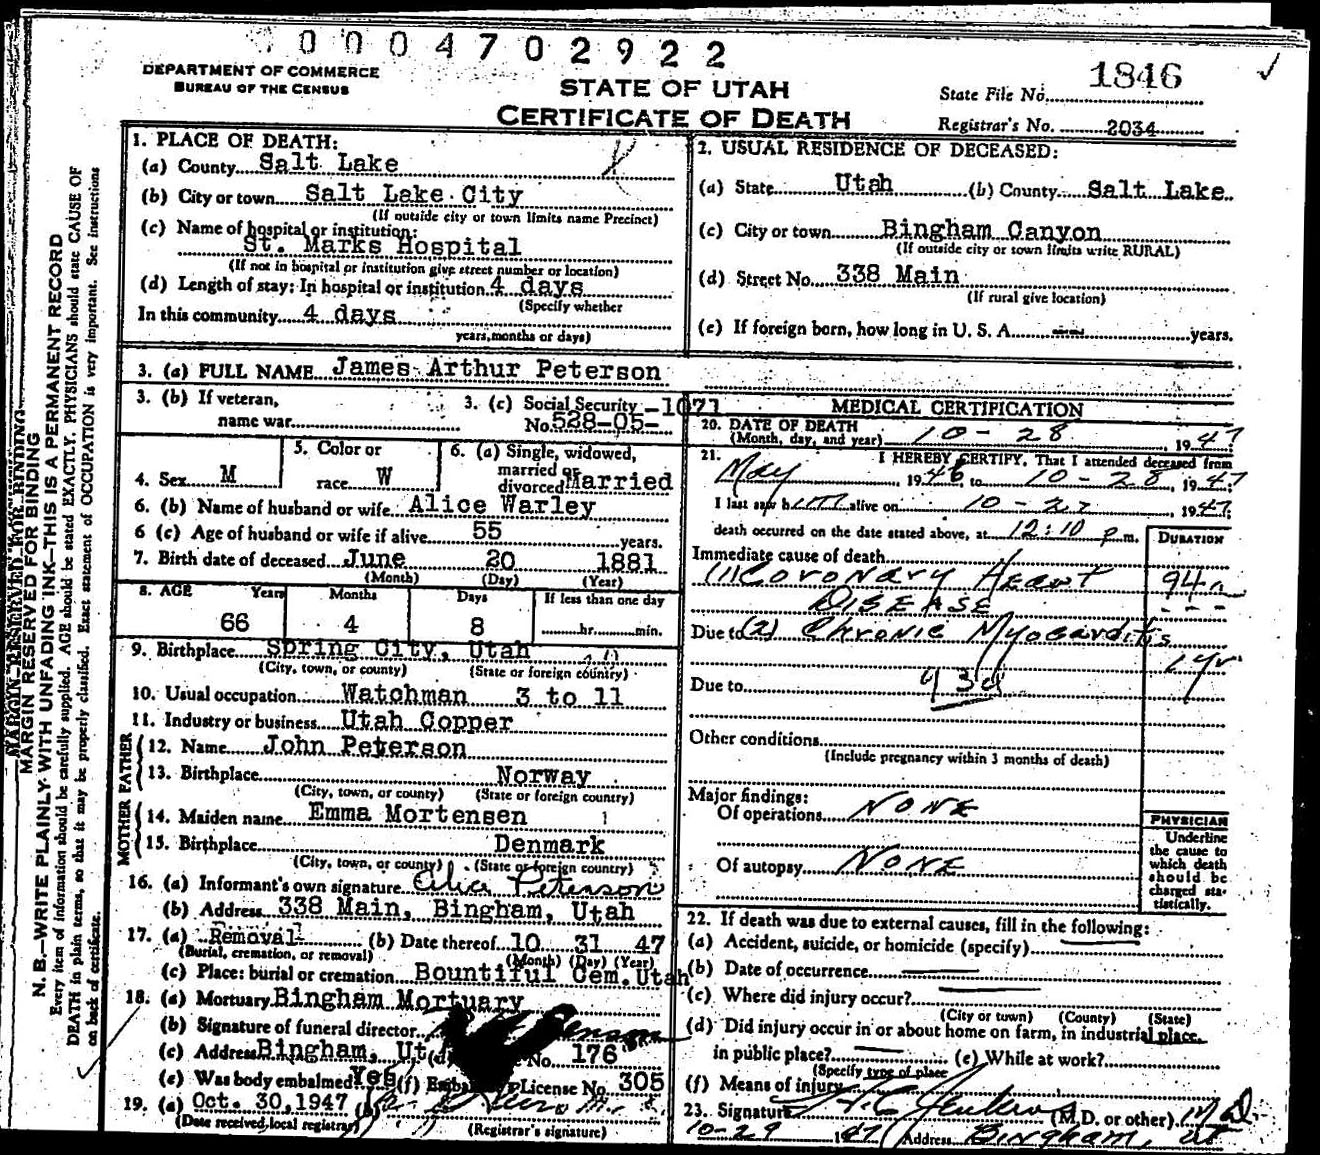 0 0 0 4 7 0 2 9 2 2
DEPARTMENT OF COMMERCE
BUREAU OF THE CENSUS
STATE OF UTAH
CERTIFICATE OF DEATH
State File No. 1846
Registrar's No. 2034
MARGIN RESERVED FOR BINDING
MARGIN RESERVED FOR BINDING
N. B.—WRITE PLAINLY WITH UNFADING INK—THIS IS A PERMANENT RECORD
Every item of information should be carefully supplied. AGE should be stated EXACTLY. PHYSICIANS should state CAUSE OF
DEATH in plain terms, so that it may be properly classified. Exact statement of OCCUPATION is very important. See instructions
on back of certificate.
1. PLACE OF DEATH:
(a) County Salt Lake
(b) City or town Salt Lake City
(If outside city or town limits name Precinct)
(c) Name of hospital or institution:
St. Marks Hospital
(If not in hospital or institution give street number or location)
(d) Length of stay: In hospital or institution 4 days
(Specify whether
In this community 4 days
years, months or days)
2. USUAL RESIDENCE OF DECEASED:
(a) State Utah (b) County Salt Lake
(c) City or town Bingham Canyon
(If outside city or town limits write RURAL)
(d) Street No. 338 Main
(If rural give location)
(e) If foreign born, how long in U. S. A. years.
3. (a) FULL NAME James Arthur Peterson
3. (b) If veteran,
name war
3. (c) Social Security
No. 528-05-1071
4. Sex M
5. Color or
race W
6. (a) Single, widowed,
married or
divorced Married
6. (b) Name of husband or wife Alice Warley
6 (c) Age of husband or wife if alive 55 years.
7. Birth date of deceased June 20 1881
(Month) (Day) (Year)
8. AGE Years Months Days If less than one day
66 4 8 hr. min.
9. Birthplace Spring City, Utah
(City, town, or county) (State or foreign country)
10. Usual occupation Watchman 3 to 11
11. Industry or business Utah Copper
FATHER
12. Name John Peterson
13. Birthplace Norway
(City, town, or county) (State or foreign country)
MOTHER
14. Maiden name Emma Mortensen
15. Birthplace Denmark
(City, town, or county) (State or foreign country)
16. (a) Informant's own signature Alice Peterson
(b) Address 338 Main, Bingham, Utah
17. (a) Removal (b) Date thereof 10 31 47
(Burial, cremation, or removal) (Month) (Day) (Year)
(c) Place: burial or cremation Bountiful Cem. Utah
18. (a) Mortuary Bingham Mortuary
(b) Signature of funeral director
(c) Address Bingham, Ut (d) No. 176
(e) Was body embalmed Yes (f) License No. 305
19. (a) Oct. 30, 1947 (b)
(Date received, local registrar) (Registrar's signature)
MEDICAL CERTIFICATION
20. DATE OF DEATH
(Month, day, and year) 10 - 28, 1947
21. I HEREBY CERTIFY, That I attended deceased from
May, 1946, to 10 - 28, 1947
I last saw him alive on 10 - 27, 1947
death occurred on the date stated above, at 12:10 p.m.
DURATION
Immediate cause of death
(1) Coronary Heart
Disease
Due to (2) Chronic Myocarditis
1 yr
Due to 93d
Other conditions
(Include pregnancy within 3 months of death)
Major findings:
Of operations NONE
Of autopsy NONE
PHYSICIAN
Underline
the cause to
which death
should be
charged sta-
tistically.
22. If death was due to external causes, fill in the following:
(a) Accident, suicide, or homicide (specify)
(b) Date of occurrence
(c) Where did injury occur?
(City or town) (County) (State)
(d) Did injury occur in or about home on farm, in industrial place,
in public place? (e) While at work?
(Specify type of place
(f) Means of injury
23. Signature (M.D. or other) M.D.
10-29 1947 Address Bingham, Ut